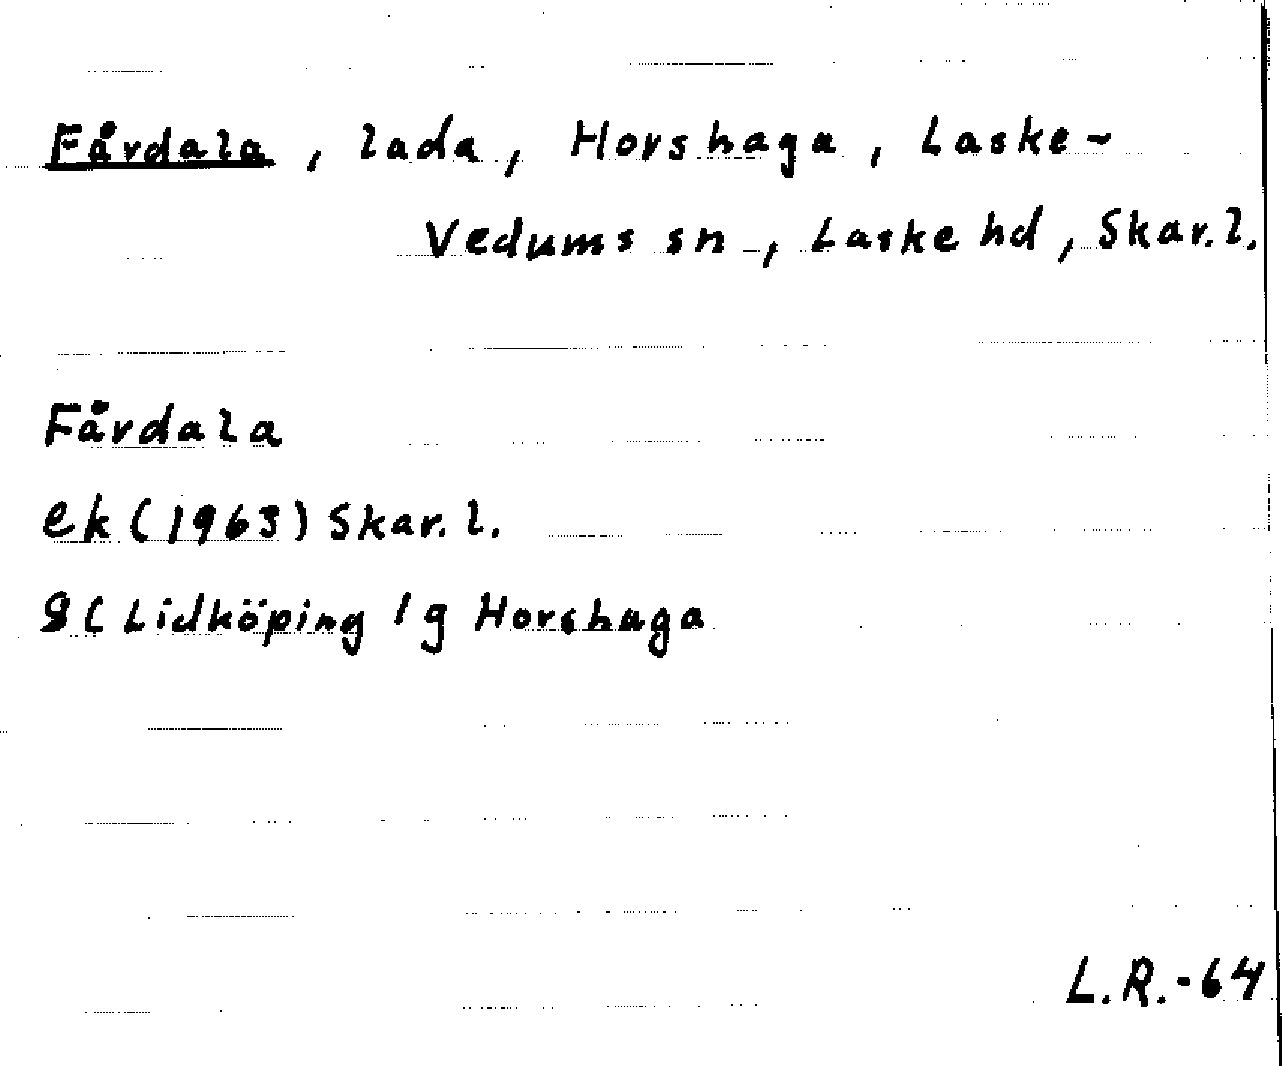 Fårdala, lada, Horshaga, Laske-
Vedums sn, Laske hd, Skar. l.
Fårdala
ek (1963) Skar. l.
8C Lidköping 1g Horshaga
L.R.-64